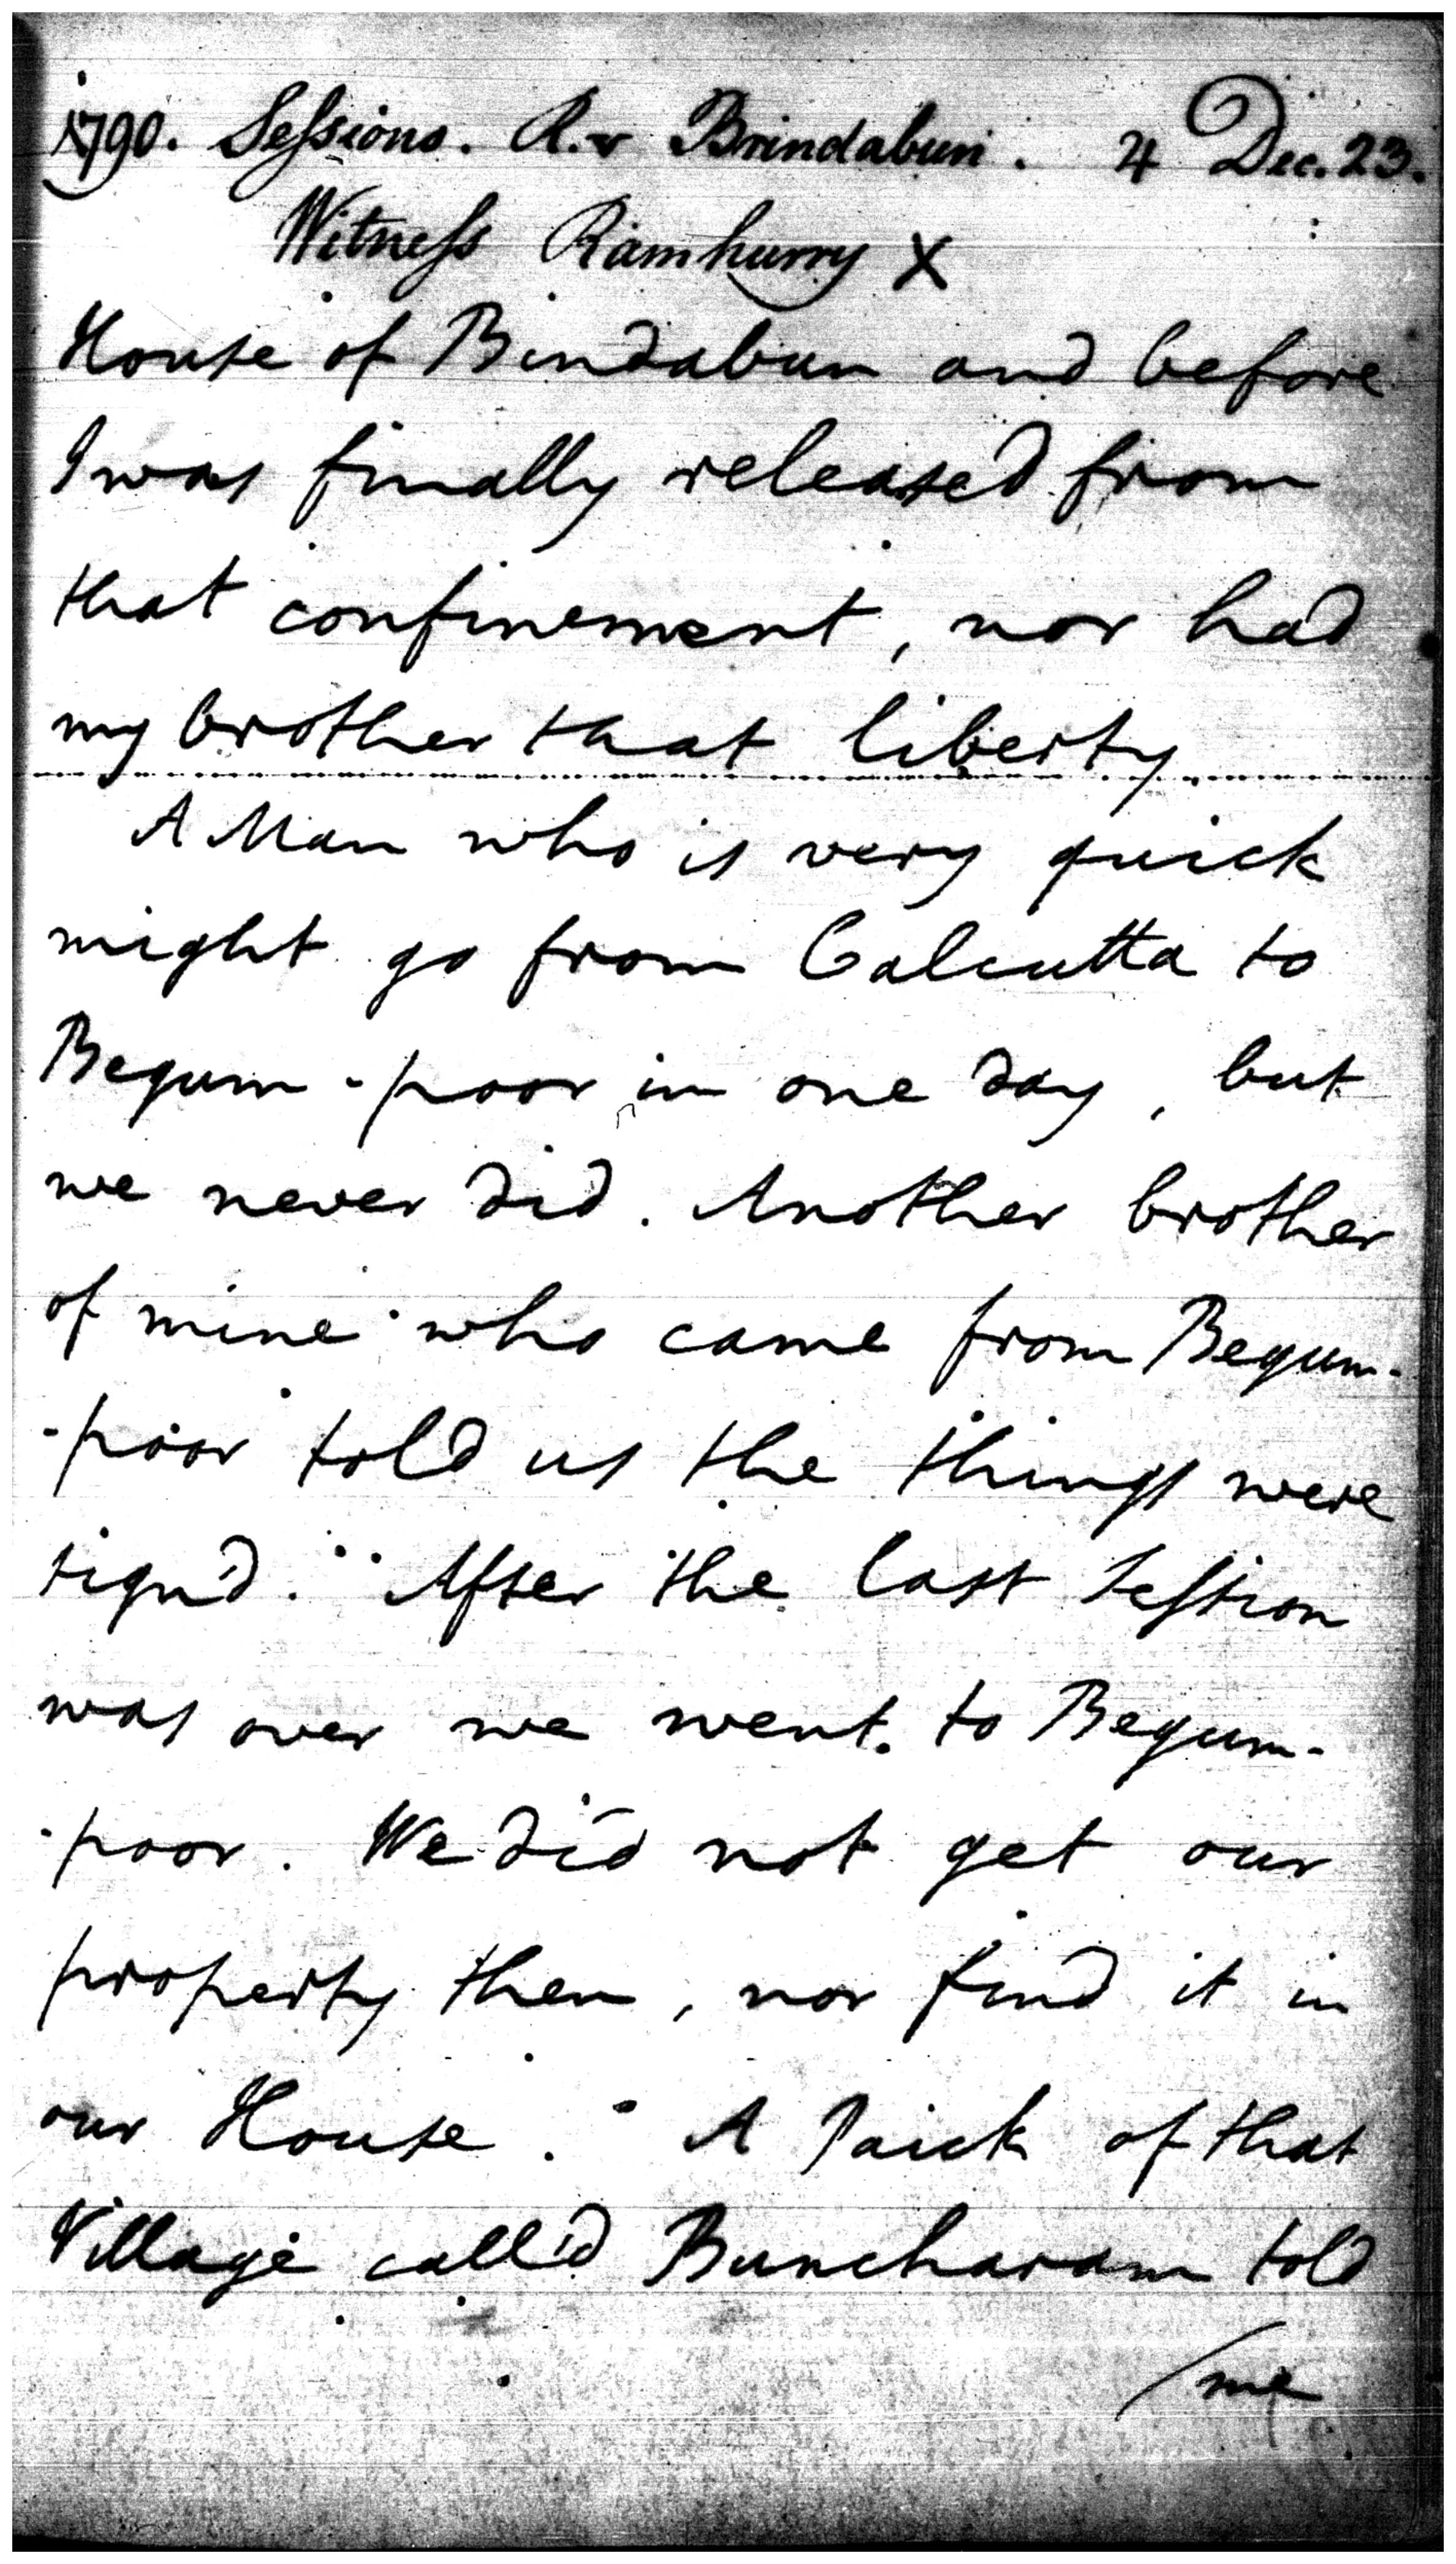 1790. Sessions. R. v Brindabun. 4 Dec. 23.
Witness Ramhurry X
House of Bindabun and before
I was finally released from
that confinement, nor had
my brother that liberty.
A Man who is very quick
might go from Calcutta to
Begum-poor in one day, but
we never did. Another brother
of mine who came from Begum-
-poor told us the things were
sign'd. After the last Session
was over we went to Begum-
-poor. We did not get our
property then, nor find it in
our House. A Paick of that
Village call'd Buncharam told
/me